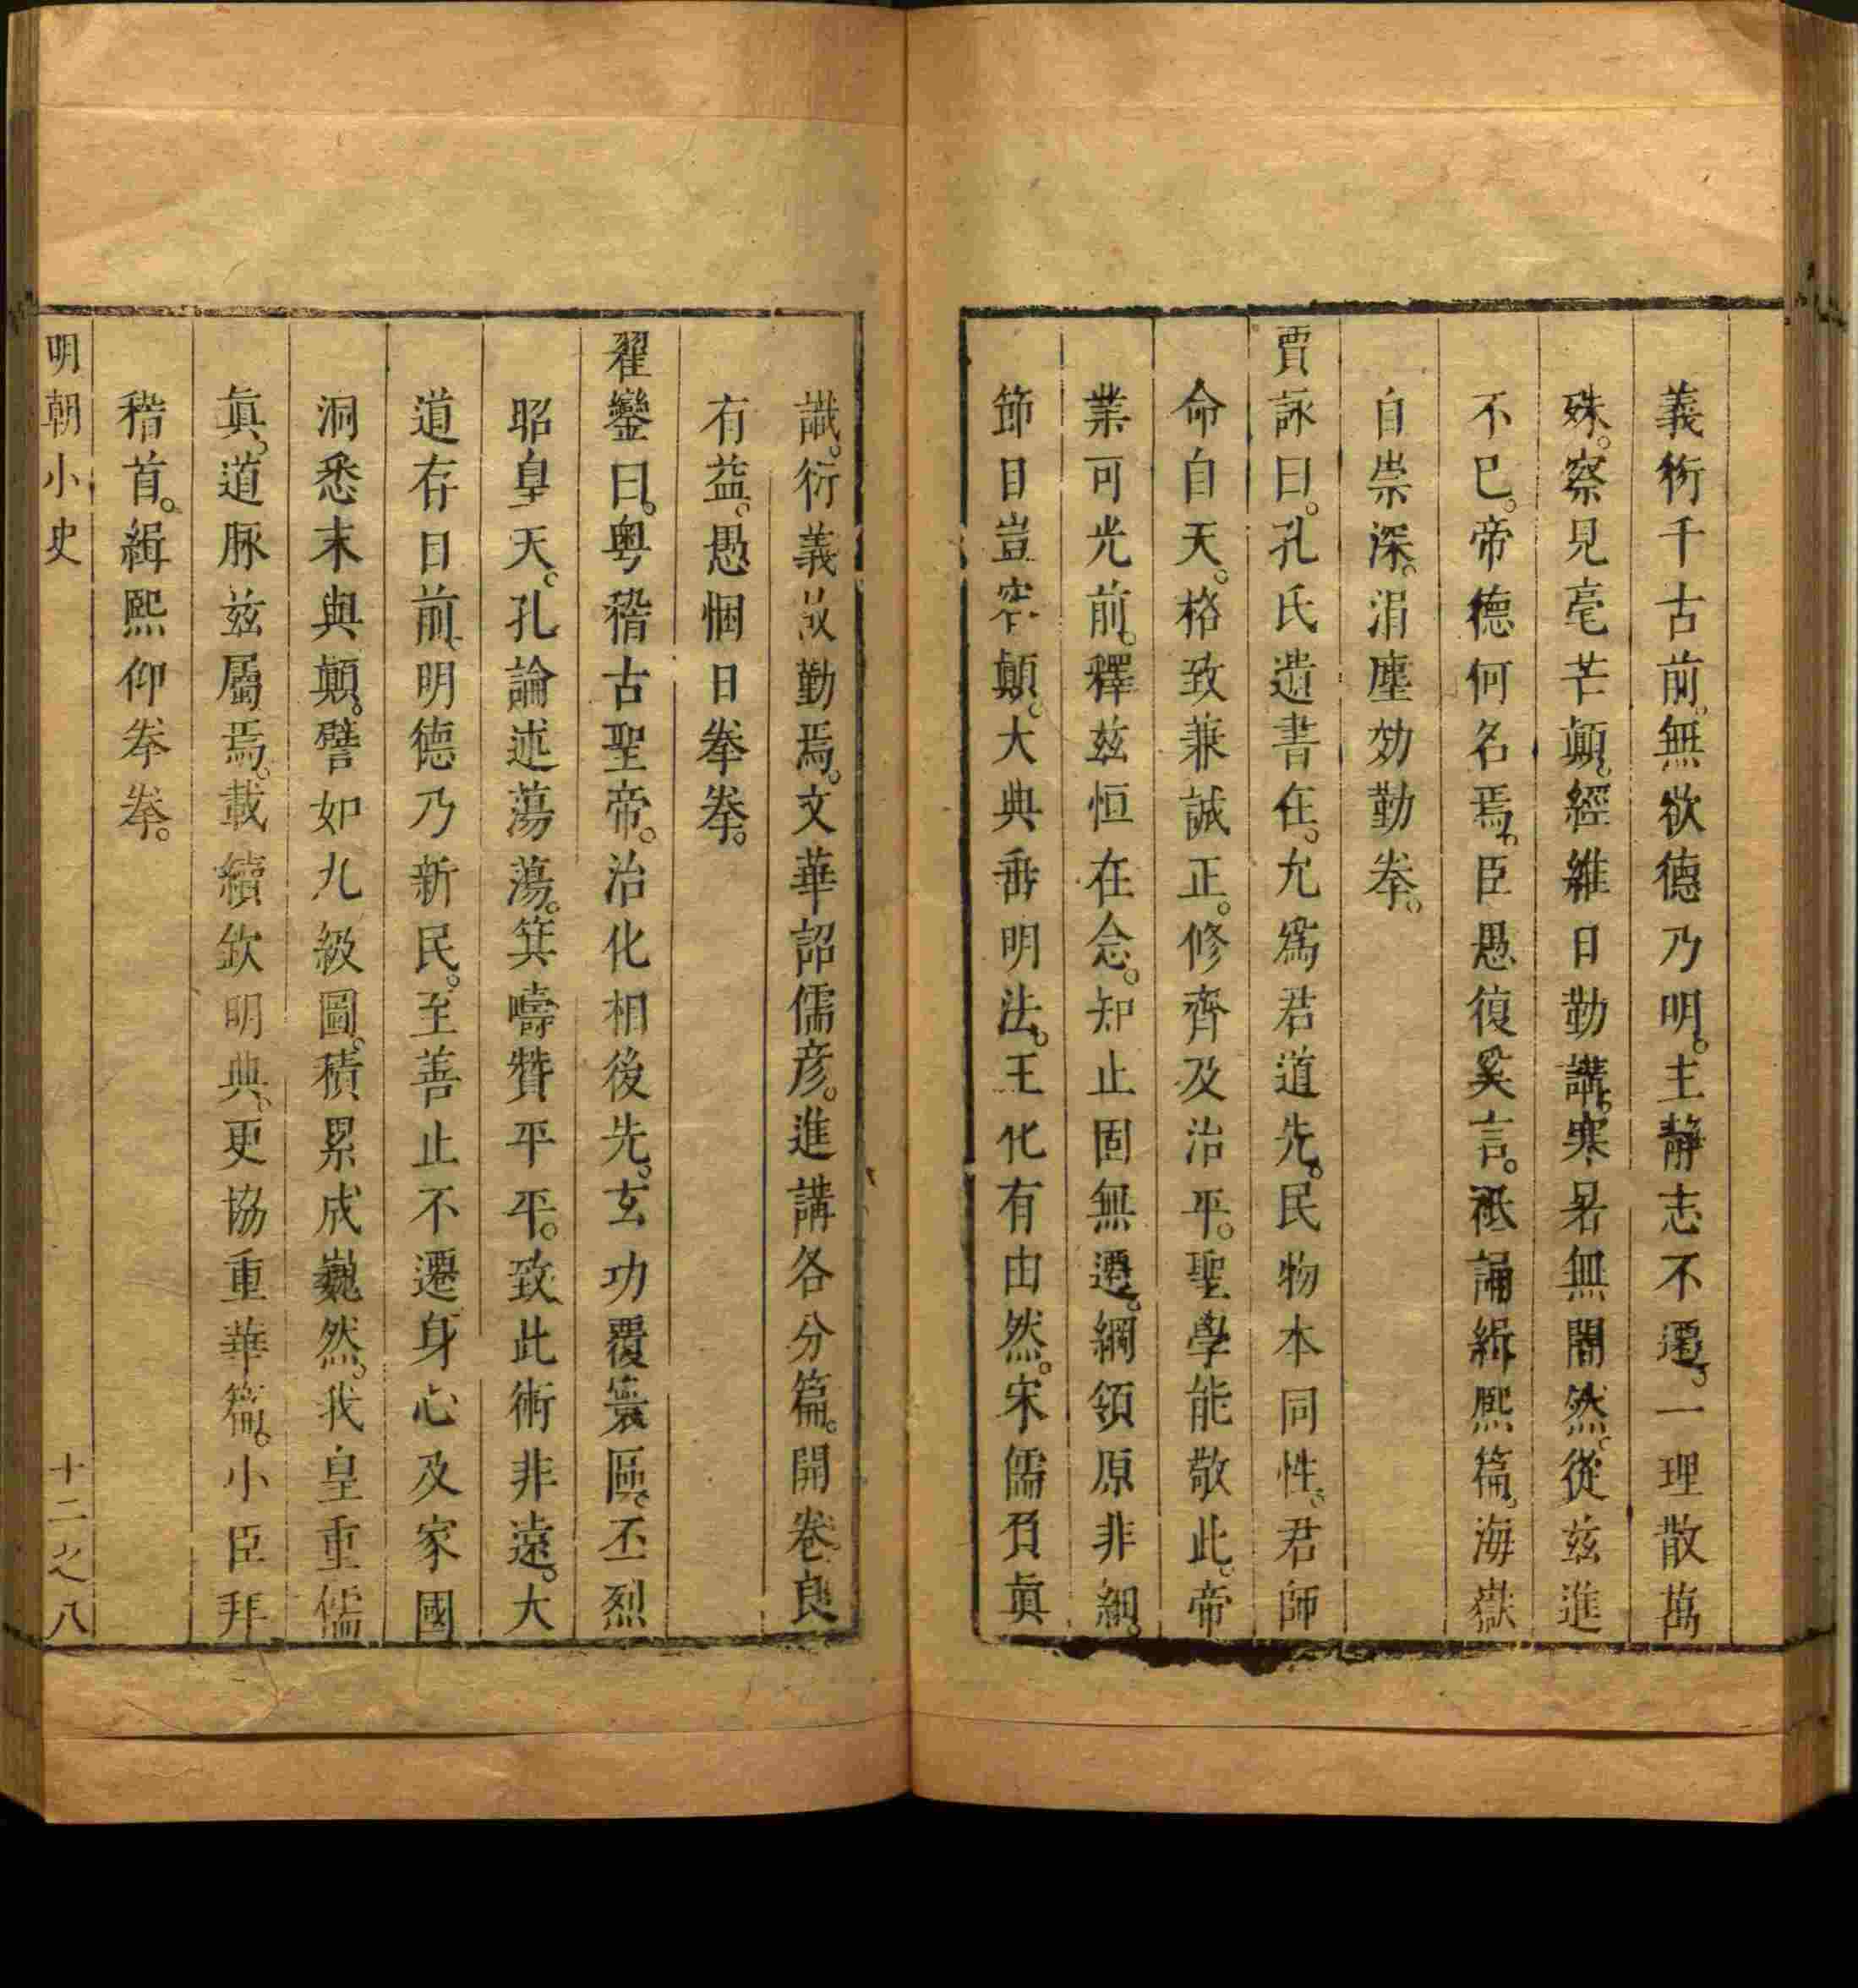 義衍千古前。無欲德乃明。主靜志不遷。一理散萬
殊。察見毫芒顛。經維日勤講。寒暑無間然。從茲進
不巳。帝德何名焉。臣愚復奚言。祗誦緝熙篇。海嶽
自崇深。涓塵効勤拳。
賈詠曰。孔氏遺書在。允爲君道先。民物本同性。君師
命自天。格致兼誠正。修齊及治平。聖學能敬此。帝
業可光前。釋茲恒在念。知止固無遷。綱領原非細。
節目豈容顛。大典垂明法。王化有由然。宋儒有眞
識。衍義故勤焉。文華詔儒彦。進講各分篇。開卷良
有益。愚悃日拳拳。
翟鑾曰。粤稽古聖帝。治化相後先。玄功覆寰區。丕烈
昭皇天。孔論述蕩蕩。箕疇贊平平。致此術非遠。大
道存日前。明德乃新民。至善止不遷。身心及家國
洞悉末與顛。譬如九級圖。積累成巍然。我皇重儒
眞。道脉茲屬焉。載續欽明典。更協重華篇。小臣拜
稽首。緝熙仰拳拳。
明朝小史
十二之八